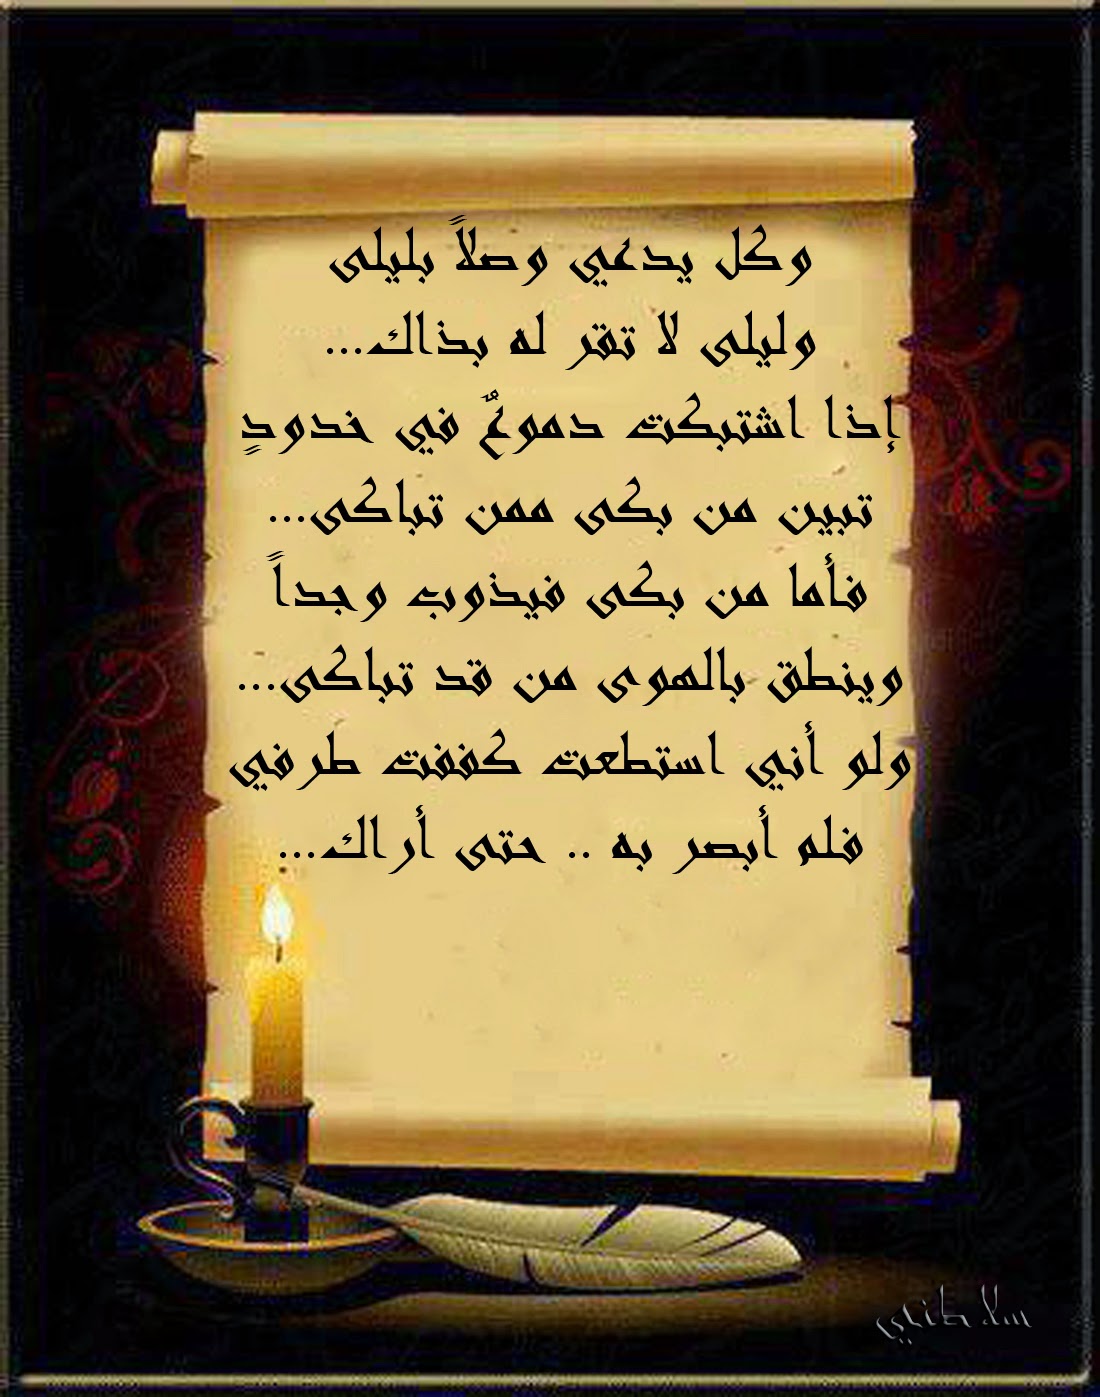 وكل يدعي وصلاً بليلى
وليلى لا تقر له بذاك...
إذا اشتبكت دموعٌ في خدودٍ
تبين من بكى ممن تباكى...
فأما من بكى فيذوب وجداً
وينطق بالهوى من قد تباكى...
ولو أني استطعت كففت طرفي
فلم أبصر به .. حتى أراك...